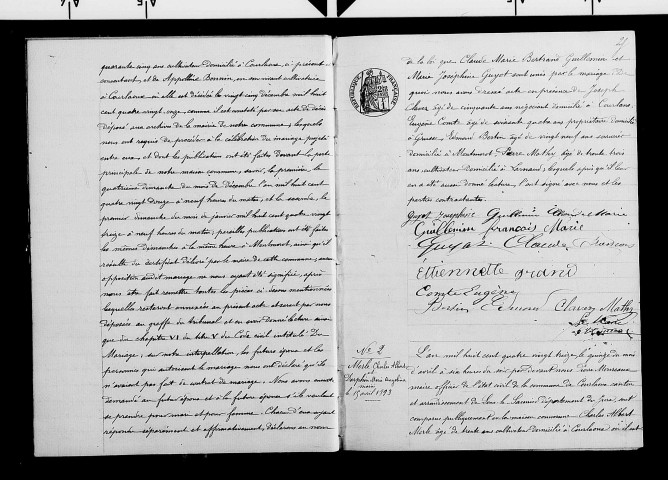 quarante cinq ans cultivateur domicilié à Courlaoux, ci présent et
consentant, et de Appolline Bonnin, en son vivant cultivatrice
à Courlaoux où elle est décédée le vingt cinq décembre mil huit
cent quatre vingt onze, comme il est constaté par son acte de décès
déposé aux archives de la mairie de notre commune, lesquels
nous ont requis de procéder à la célébration du mariage projeté
entre eux, et dont la publication ont été faites devant la porte
principale de notre maison commune, savoir, la première, le
quatrième dimanche du mois de Décembre l'an mil huit cent
quatre vingt douze à neuf heures du matin, et la seconde, le
premier dimanche du mois de janvier mil huit cent quatre vingt
treize à neuf heures du matin, pareilles publications ont été faites
les mêmes dimanches à la même heure à Montmorot, ainsi qu'il
résulte du certificat délivré par le maire de cette commune, aucune
opposition audit mariage ne nous ayant été signifiée, après
nous être fait remettre toutes les pièces ci dessus mentionnées
lesquelles resteront annexées au présent acte et seront par nous
déposées au greffe du tribunal et en avoir donné lecture ainsi
que du chapitre VI du titre V du Code civil intitulé Du
Mariage, sur notre interpellation, les futurs époux et les
personnes qui autorisent le mariage nous ont déclaré qu'ils
n'avaient pas fait de contrat de mariage. Nous avons ensuite
demandé au futur époux et à la future épouse s'ils veulent
se prendre pour mari et pour femme. Chacun d'eux ayant
répondu séparément et affirmativement, déclarons au nom
27
de la loi que Claude Marie Bertrand Guillemin et
Marie Joséphine Guyot sont unis par le mariage. De
quoi nous avons dressé acte en présence de Joseph
âgé de cinquante ans négociant domicilié à Courlans,
Eugène Comte âgé de soixante quatre ans propriétaire domicilié
à Gevuse, Edmond âgé de vingt neuf ans
domicilié à Montmorot, Pierre Mathy âgé de trente trois
ans cultivateur domicilié à Larnaud, lesquels après qu'il leur
en a été aussi donné lecture, l'ont signé avec nous et les
parties contractantes.
RÉPUBLIQUE FRANÇAISE
Guyot Josephine Guillemin Marie
Guillemin françois Marie
Guyot Claude François
Ettienne
Comte Eugène
Mathy
No 2
Merle, Charles Albert
et
Marie
le 15 avril 1893
L'an mil huit cent quatre vingt treize le quinze du mois
d'avril à six heures du soir par devant nous
maire officier de l'état civil de la commune de Courlaoux canton
et arrondissement de Lons le Saunier département du Jura, ont
comparu publiquement en la maison commune Charles Albert
Merle âgé de trente ans cultivateur domicilié à Courlaoux où il est